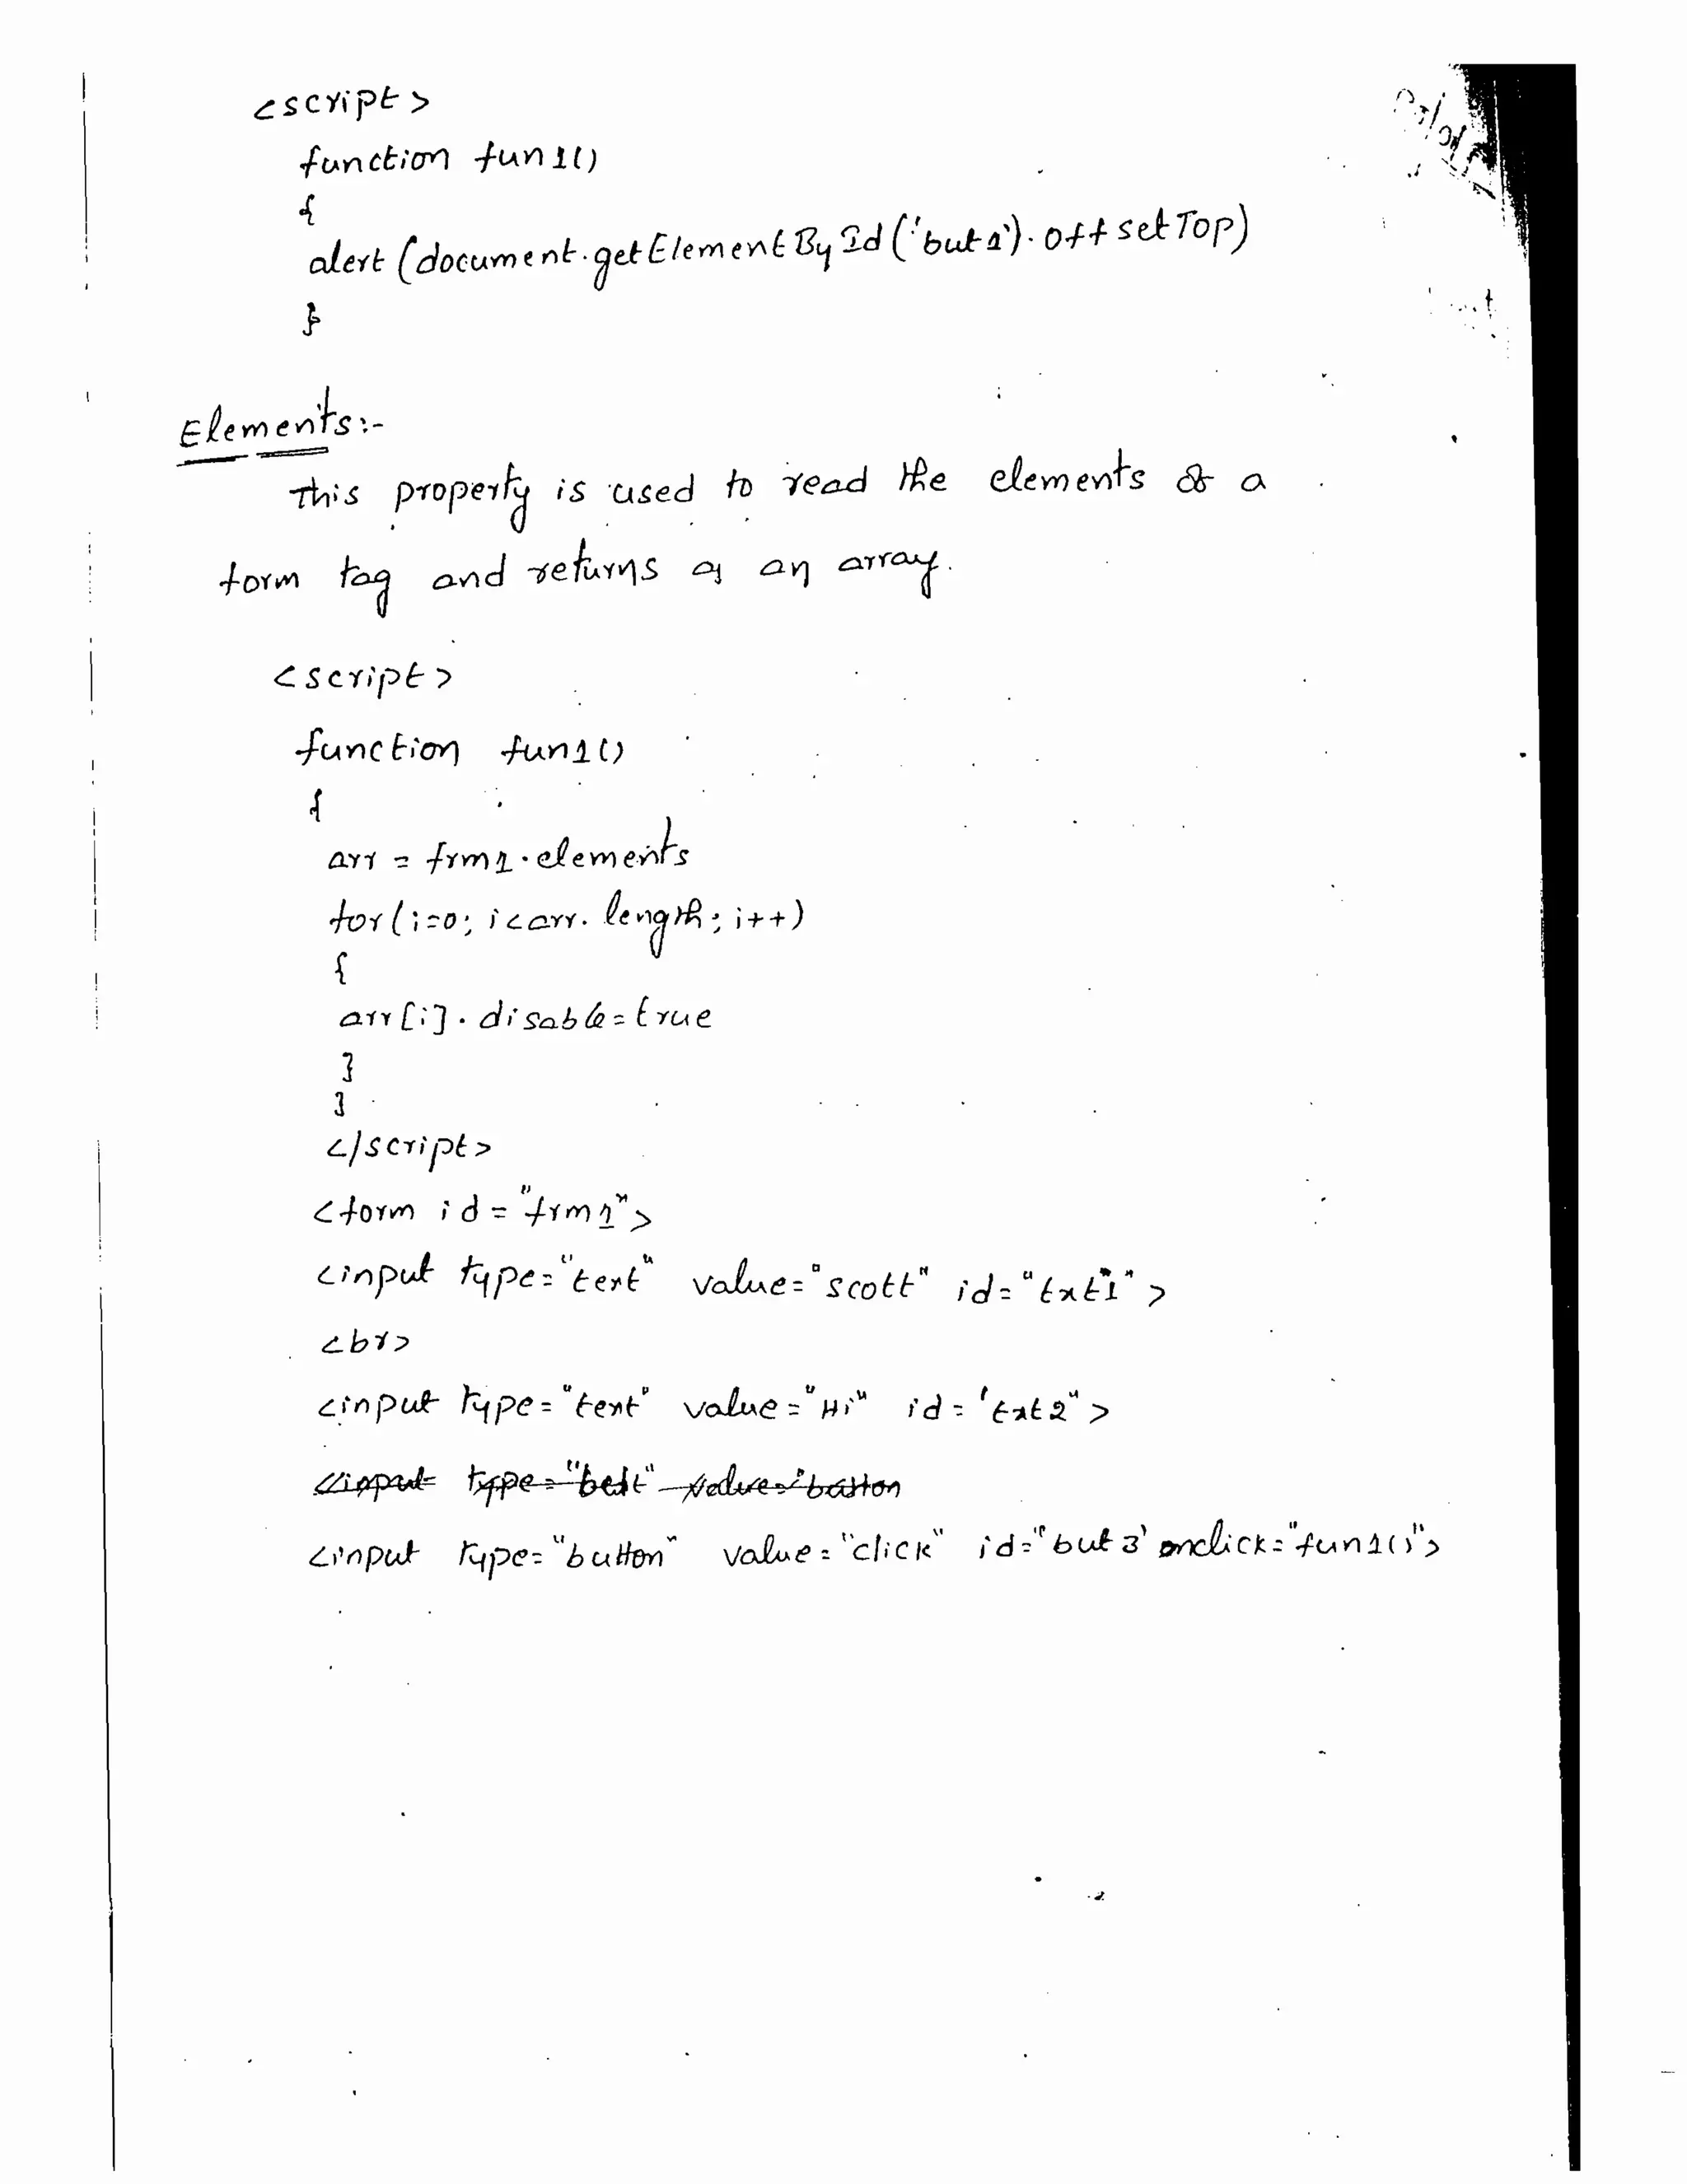 <script>
function fun1()
{
alert (document.getElementById('but1').offsetTop)
}
Elements:-
This property is used to read the elements of a
form tag and returns as an array.
<script>
function fun1()
{
arr = frm1.elements
for(i=0; i<arr.length; i++)
{
arr[i].disable=true
}
}
</script>
<form id="frm1">
<input type="text" value="scott" id="txt1">
<br>
<input type="text" value="Hi" id='txt2">
<input type="button" value="click" id="but3' onclick="fun1()">